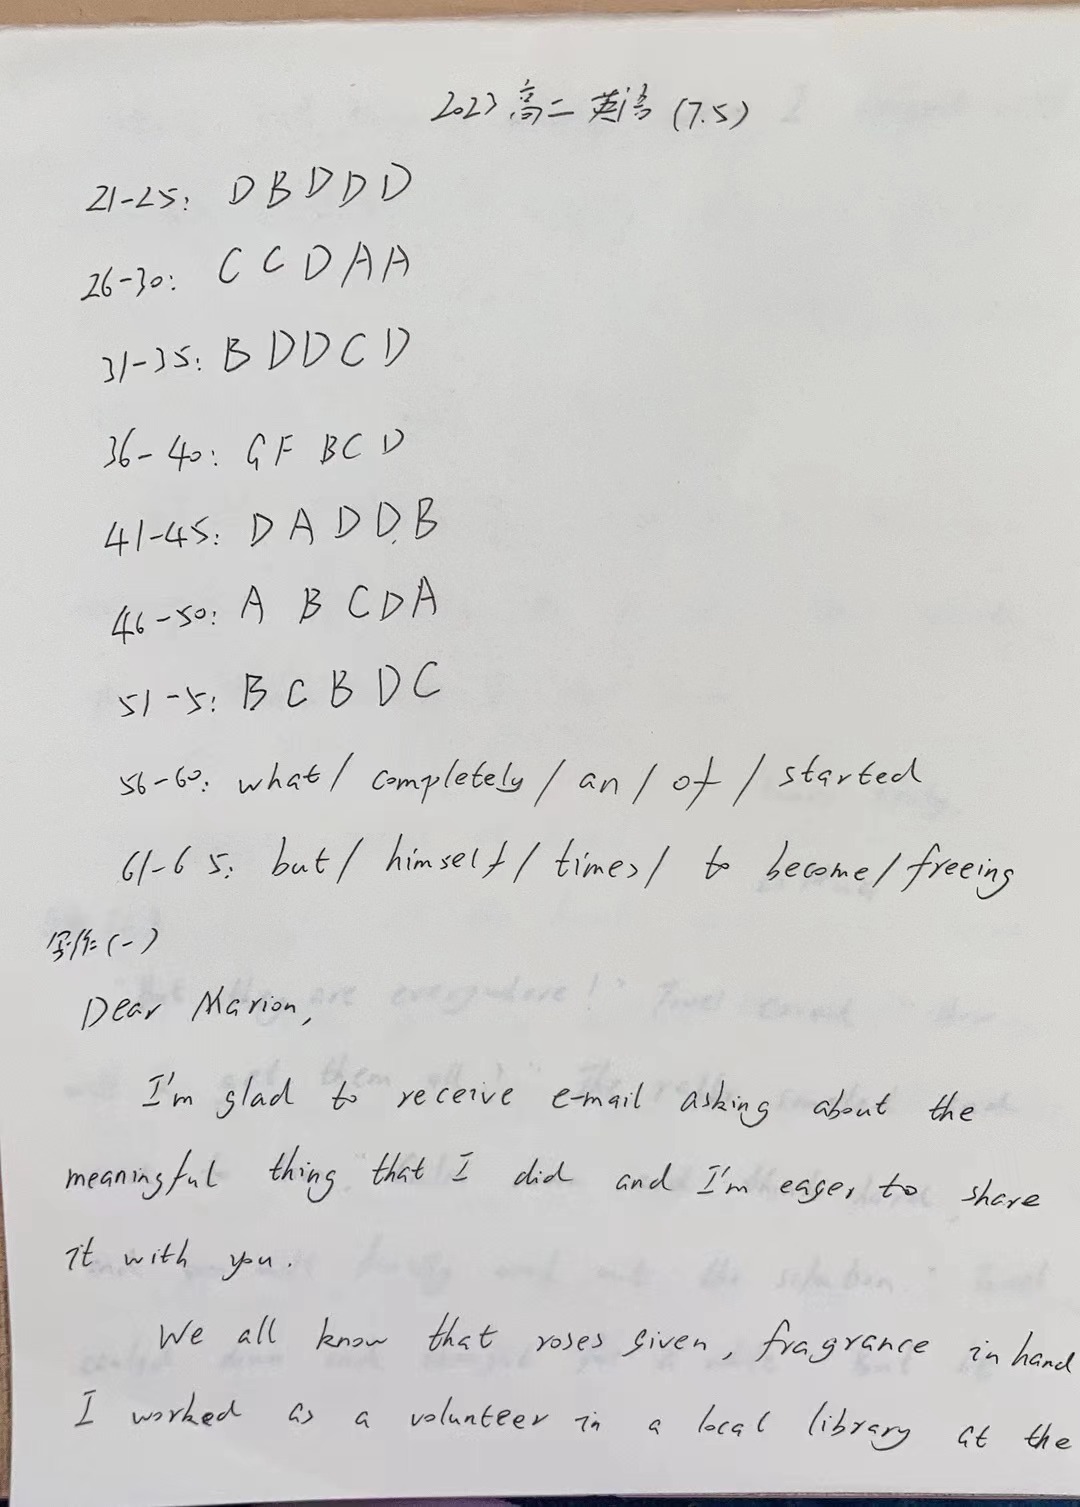 2023高二英语(7.5)
21-25: D B D D D
26-30: C C D A A
31-35: B D D C D
36-40: G F B C D
41-45: D A D D B
46-50: A B C D A
51-5: B C B D C
56-60: what/ completely/ an/ of/ started
61-65: but/ himself/ times/ to become/ freeing
写作(一)
Dear Marion,
I'm glad to receive e-mail asking about the
meaningful thing that I did and I'm eager to share
it with you.
We all know that roses given, fragrance in hand
I worked as a volunteer in a local library at the